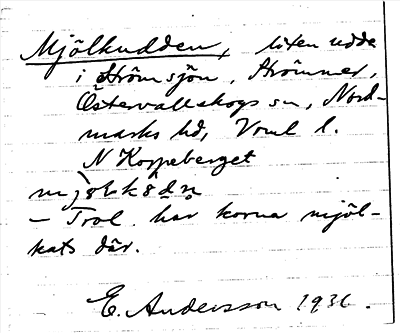 Mjölkudden, liten udde
i Strömsjön, Strömmer,
Östervallskogs sn, Nord-
marks hd, Vrml l.
N Kopeberget
– Trol. har korna mjöl-
kats där.
E. Andersson 1936.